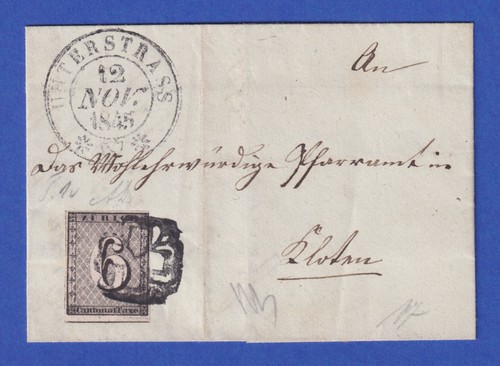 UNTERSTRASS
12
NOV.
1845
An
Das Wohlehrwürdige Pfarramt in
Kloten
ZÜRICH
6
Cantonal-Taxe